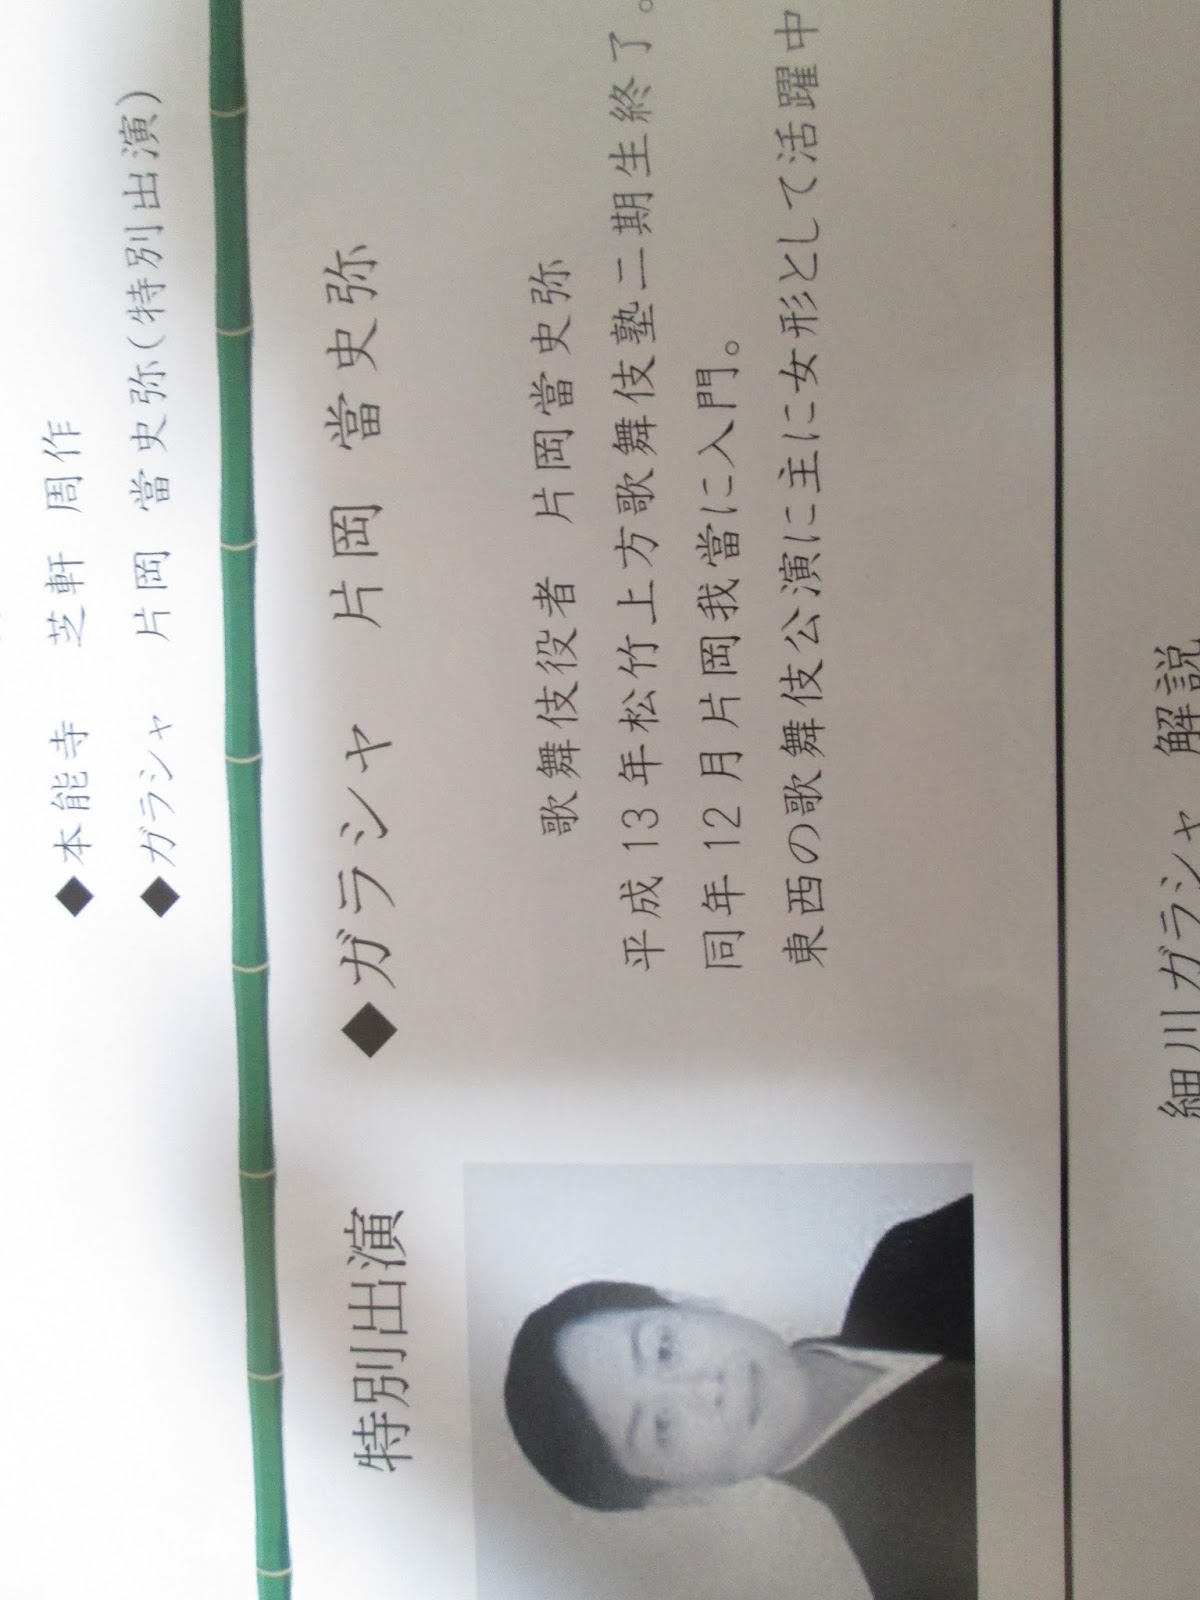 ◆本能寺　芝軒 周作
◆ガラシャ　片岡　當史弥(特別出演)
特別出演　◆ガラシャ　片岡　當史弥
歌舞伎役者　片岡當史弥
平成13年松竹上方歌舞伎塾二期生終了。
同年12月片岡我當に入門。
東西の歌舞伎公演に主に女形として活躍中
細川ガラシャ　解説